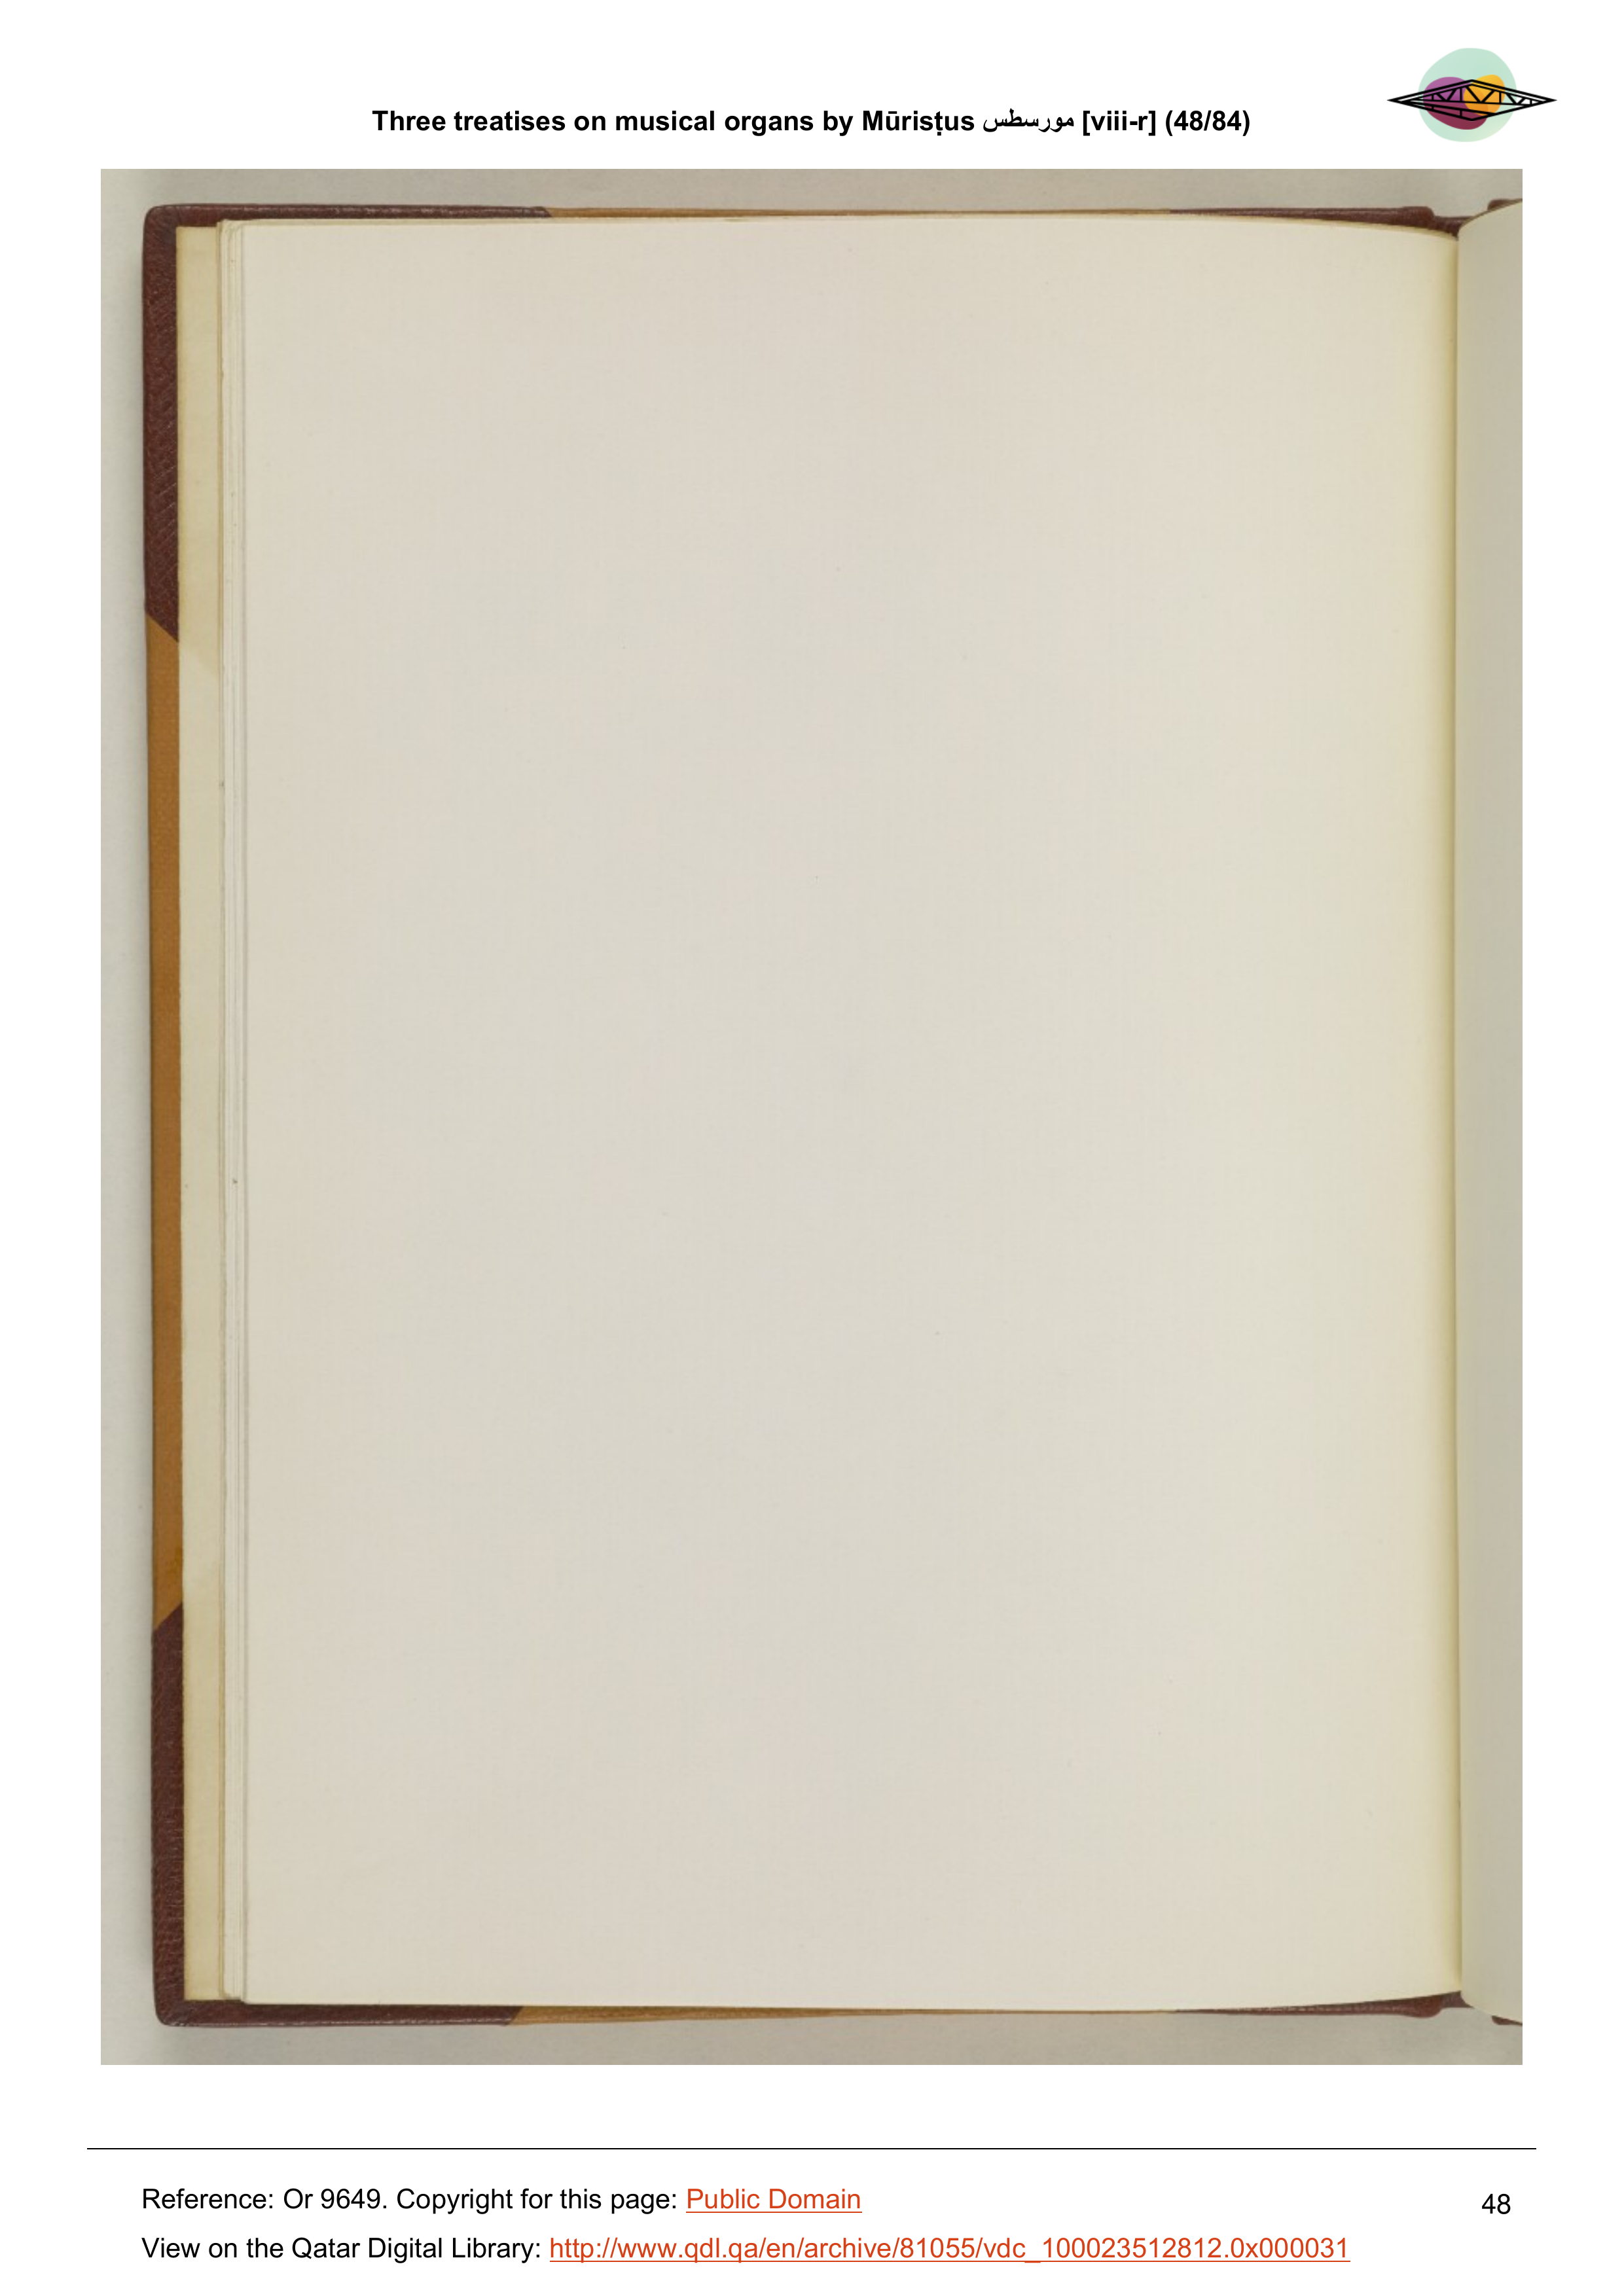 Three treatises on musical organs by Mūrisṭus مورسطس [viii-r] (48/84)
Reference: Or 9649. Copyright for this page: Public Domain
48
View on the Qatar Digital Library: http://www.qdl.qa/en/archive/81055/vdc_100023512812.0x000031